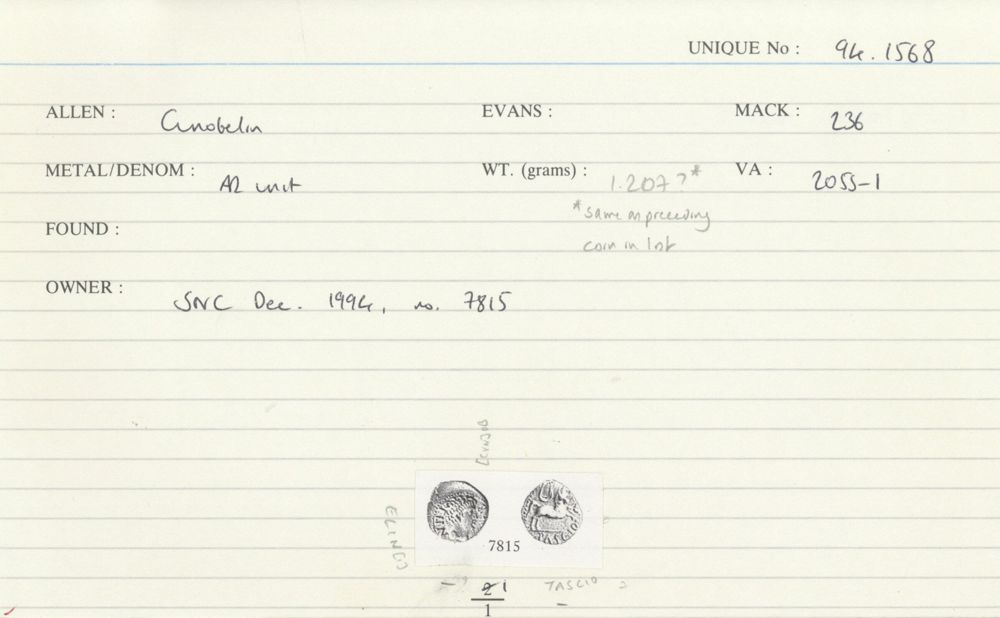 UNIQUE No : 94.1568
ALLEN : Cunobelin EVANS : MACK : 236
METAL/DENOM : AR unit WT. (grams) : 1.207?* VA : 2055-1
*same as preceding
coin in list
FOUND :
OWNER : SNC Dec. 1994, no. 7815
ELIN[
TASCIO
7815
TASCIO
2 1
1